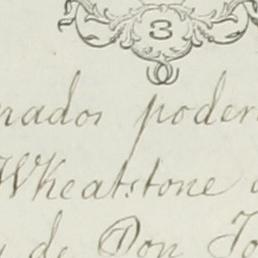 3
nados poder
Wheatstone
de Don